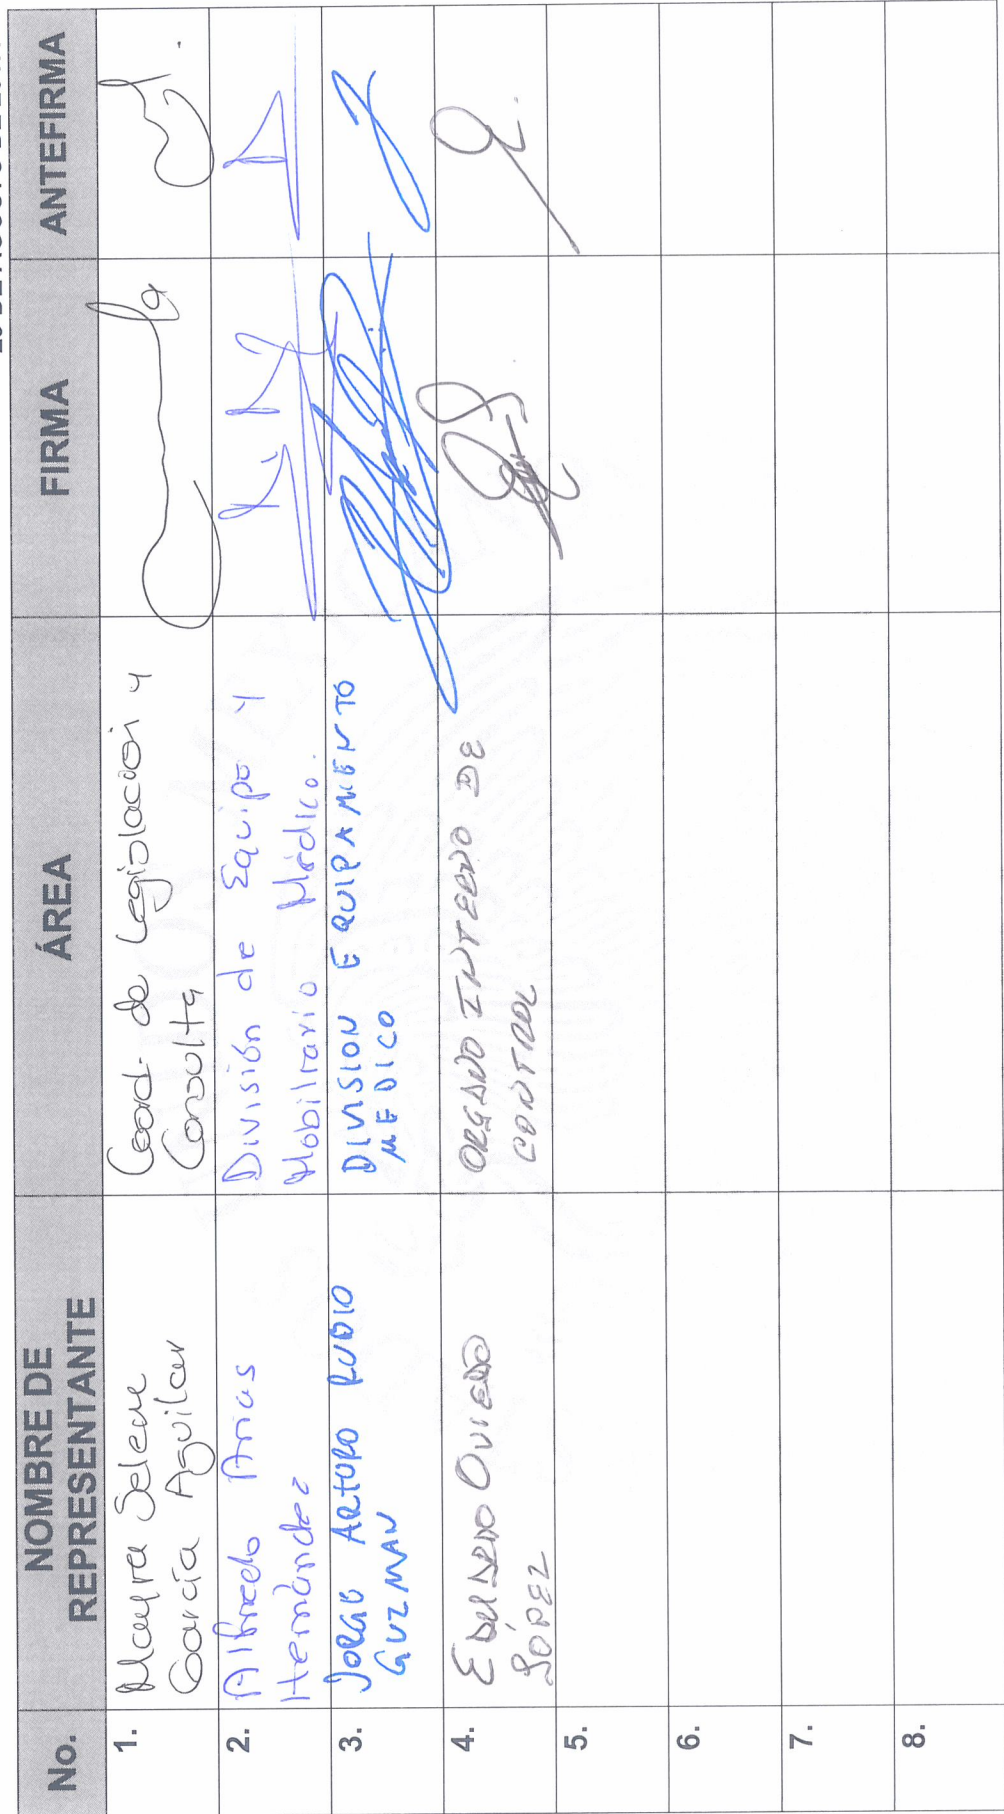 No.
NOMBRE DE
REPRESENTANTE
ÁREA
FIRMA
ANTEFIRMA
1.
Mayra Selene
García Aguilar
Coord. de Legislación y
Consulta
2.
Alfredo Arias
Hernández
División de Equipo y
Mobiliario Médico.
3.
JORGE ARTURO RUBIO
GUZMAN
DIVISION EQUIPAMIENTO
MEDICO
4.
OVIEDO
LÓPEZ
ORGANO INTERNO DE
CONTROL
5.
6.
7.
8.